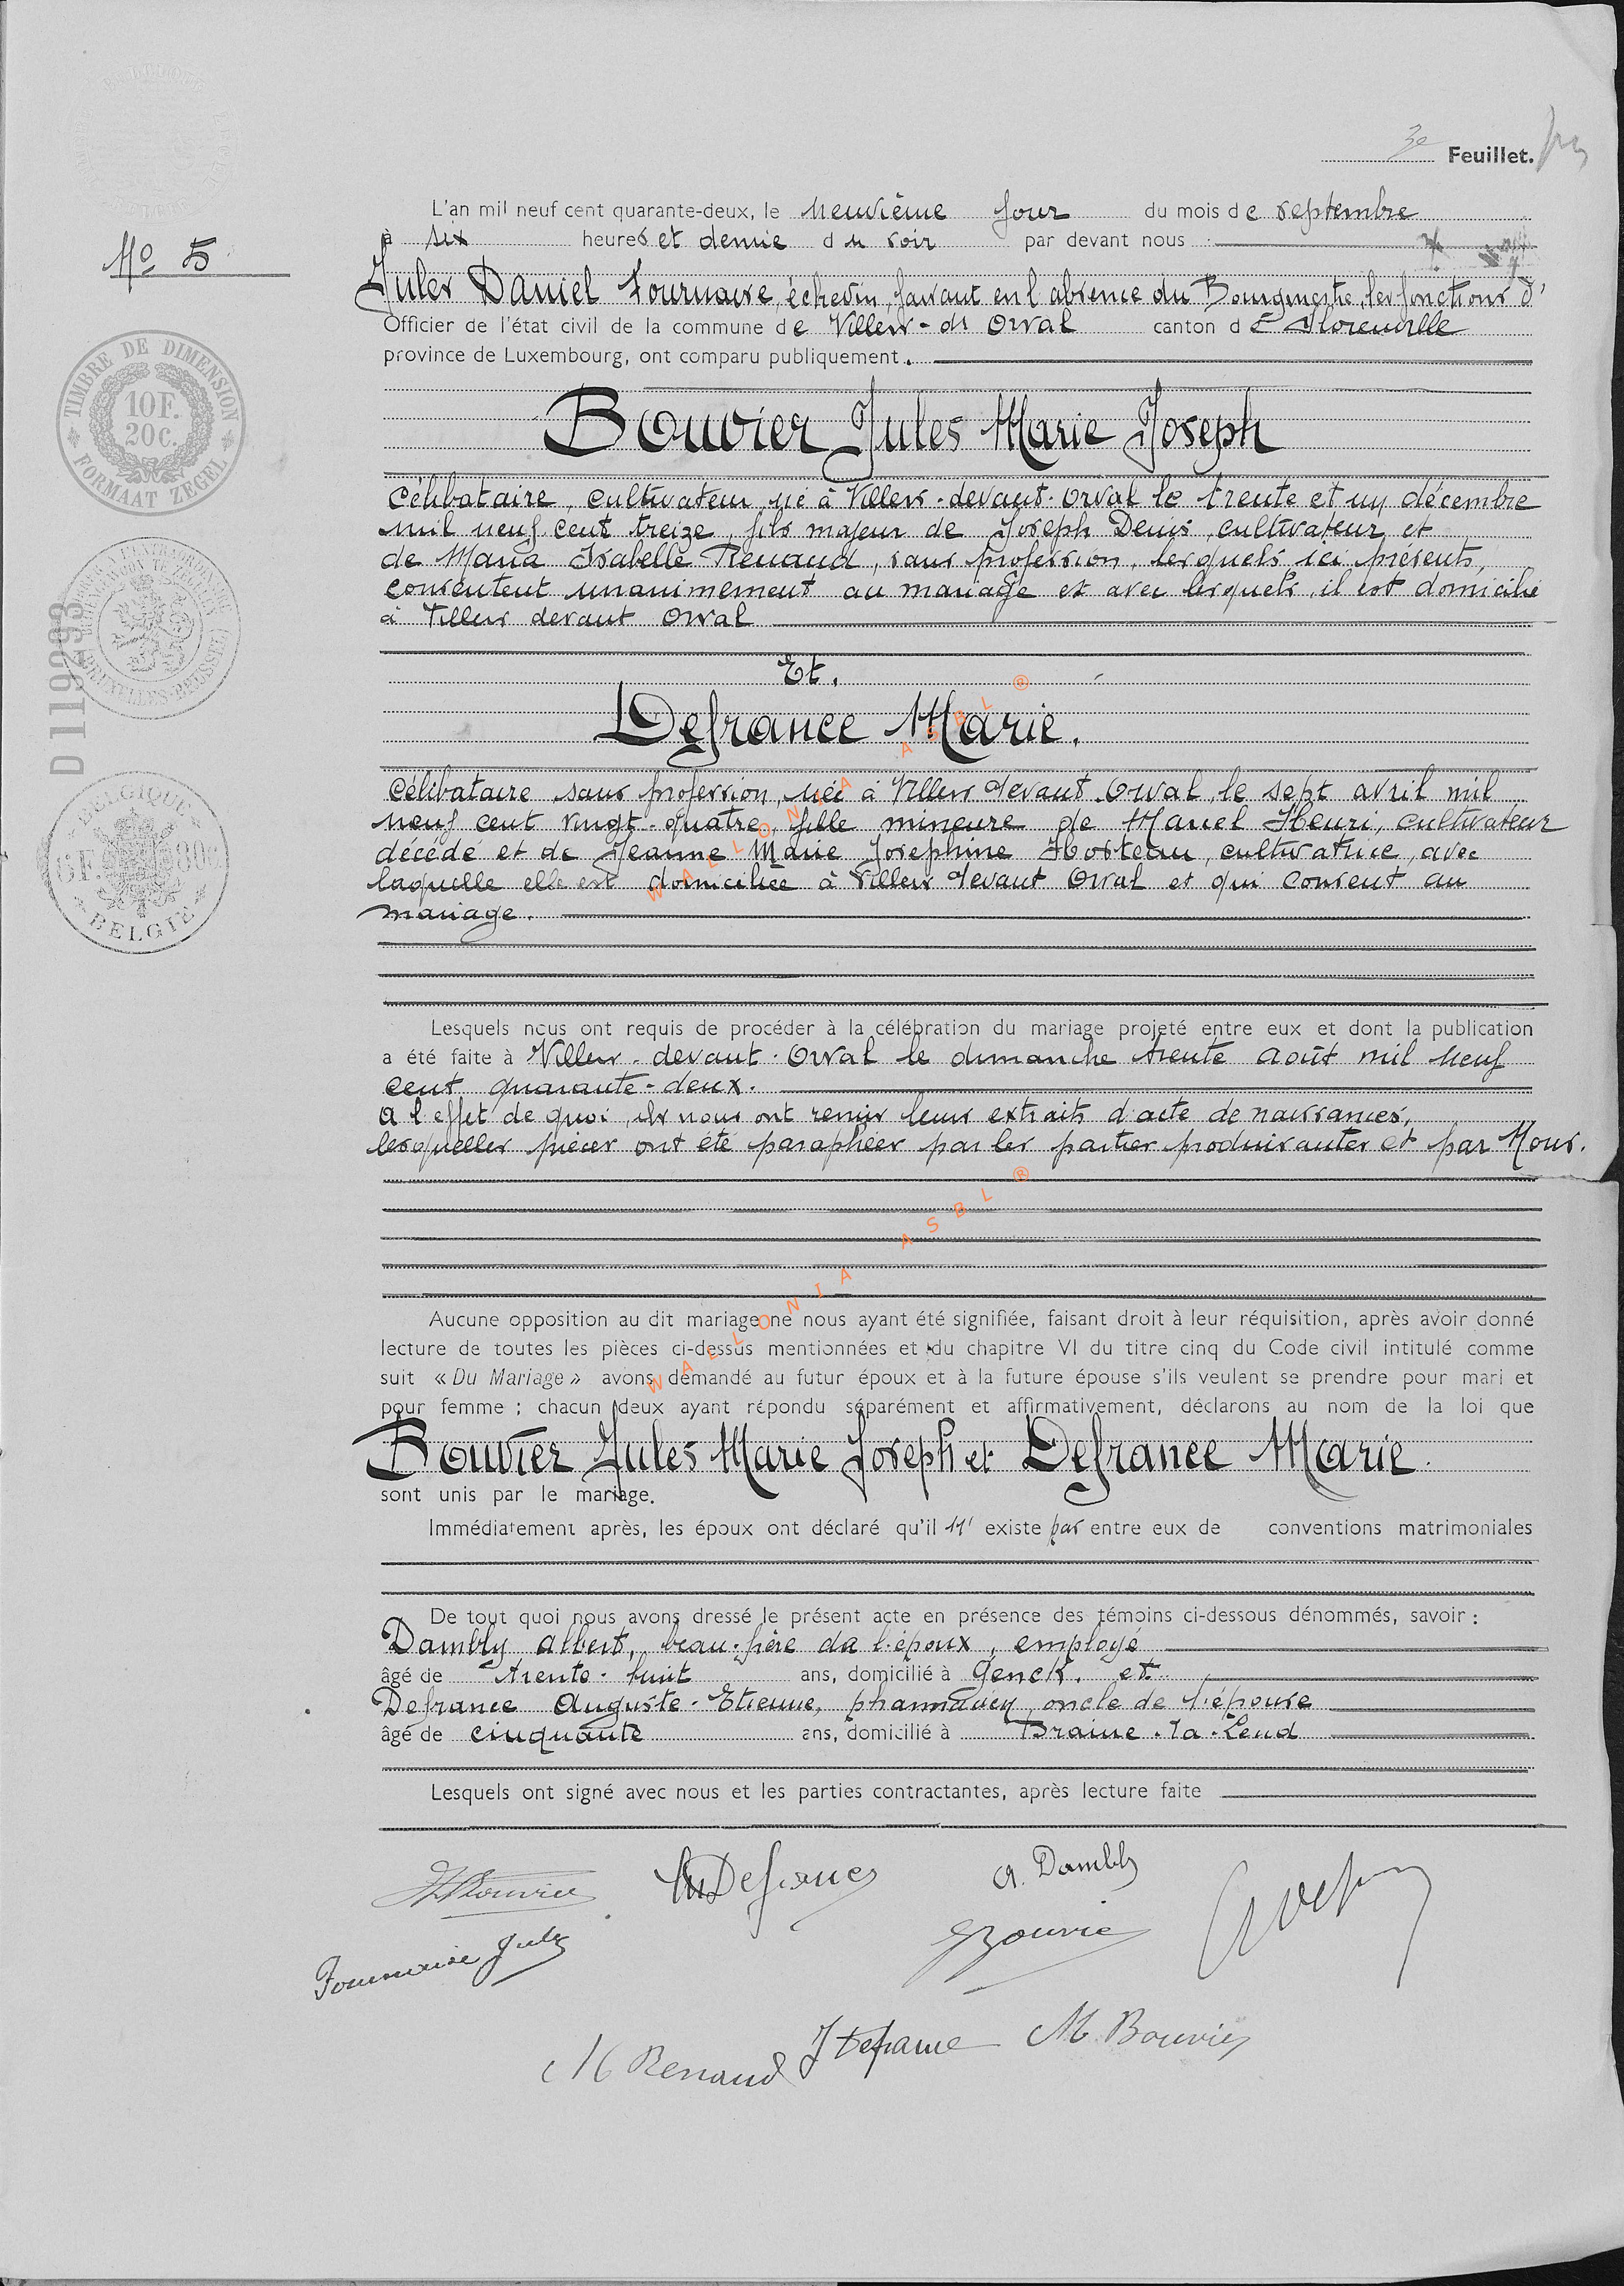 3e Feuillet.
L'an mil neuf cent quarante-deux, le neuvième jour du mois de septembre
No 5
à six heures et demie du soir par devant nous
Jules Daniel Fournaise, échevin, faisant en l'absence du Bourgmestre, les fonctions d'
Officier de l'état civil de la commune de Villers-dt Orval canton de Florenville
province de Luxembourg, ont comparu publiquement.
Bouvier Jules Marie Joseph
célibataire, cultivateur, né à Villers-devant-Orval le trente et un décembre
mil neuf cent treize, fils majeur de Joseph Denis, cultivateur, et
de Maria Isabelle Renaud, sans profession, lesquels ici présents,
consentent unanimement au mariage et avec lesquels, il est domicilié
à Villers devant Orval
Et.
Defrance Marie.
célibataire sans profession, née à Villers devant Orval, le sept avril mil
neuf cent vingt-quatre, fille mineure de Marcel Henri, cultivateur
décédé et de Jeanne Marie Josephine Hosteau, cultivatrice, avec
laquelle elle est domiciliée à Villers devant Orval et qui consent au
mariage.
Lesquels nous ont requis de procéder à la célébration du mariage projeté entre eux et dont la publication
a été faite à Villers-devant-Orval le dimanche trente août mil neuf
cent quarante-deux.
A l'effet de quoi, ils nous ont remis leurs extraits d'acte de naissances,
lesquelles pièces ont été paraphées par les parties produisantes et par Nous.
Aucune opposition au dit mariage ne nous ayant été signifiée, faisant droit à leur réquisition, après avoir donné
lecture de toutes les pièces ci-dessus mentionnées et du chapitre VI du titre cinq du Code civil intitulé comme
suit « Du Mariage » avons demandé au futur époux et à la future épouse s'ils veulent se prendre pour mari et
pour femme ; chacun deux ayant répondu séparément et affirmativement, déclarons au nom de la loi que
Bouvier Jules Marie Joseph et Defrance Marie.
sont unis par le mariage.
Immédiatement après, les époux ont déclaré qu'il n' existe pas entre eux de conventions matrimoniales
De tout quoi nous avons dressé le présent acte en présence des témoins ci-dessous dénommés, savoir :
Dambly Albert, beau-frère de l'époux, employé
âgé de trente-huit ans, domicilié à Genck. et
Defrance Auguste-Etienne, pharmacien, oncle de l'épouse
âgé de cinquante ans, domicilié à Braine-la-Leud
Lesquels ont signé avec nous et les parties contractantes, après lecture faite
Bouvier
M Defrance
A. Dambly
Fournaise Jules
J Bouvier
M Renaud
J Defrance
M. Bouvier
TIMBRE DE DIMENSION
10F.
20C.
FORMAAT ZEGEL
BRUXELLES-BRUSSEL
D 119293
BELGIQUE
6F. 80c
BELGIE
WALLONIA ASBL ®
WALLONIA ASBL ®